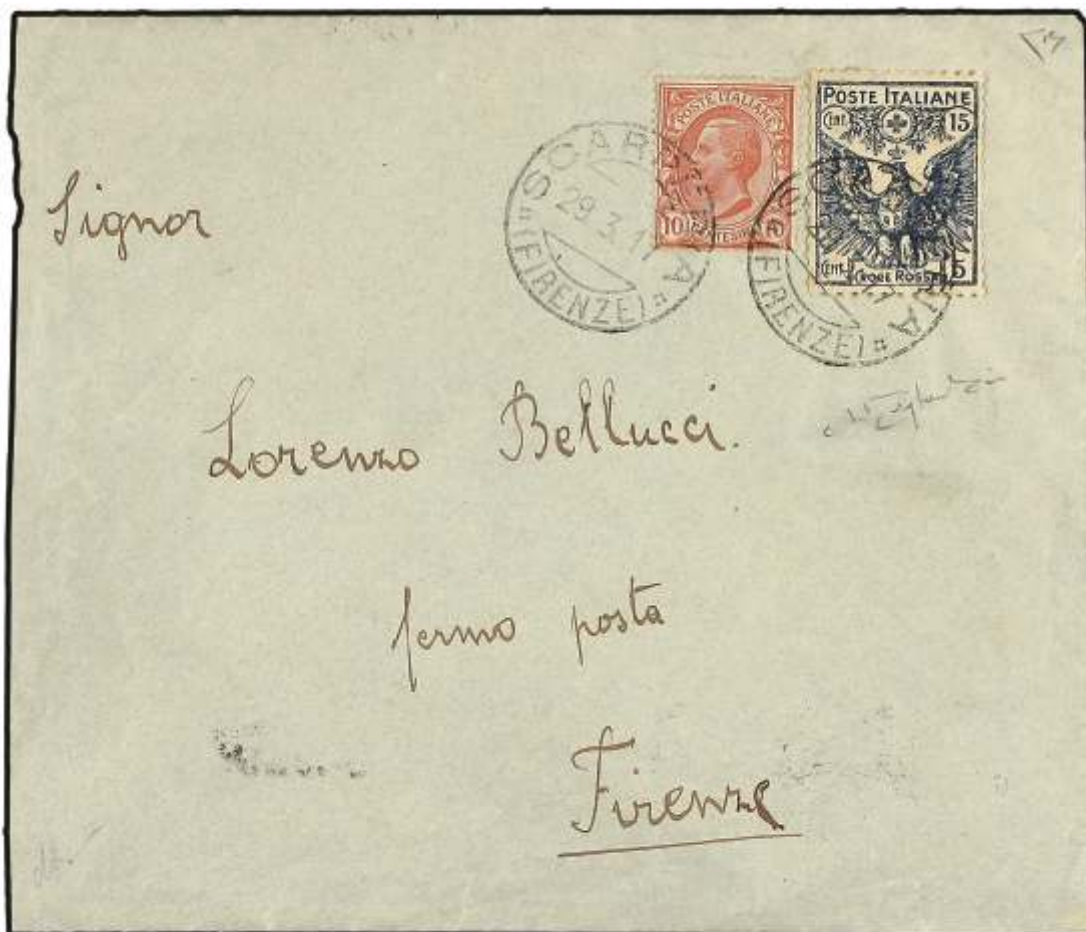 POSTE ITALIANE
10 CENTESIMI
POSTE ITALIANE
CENT 15
CENT 5
CROCE ROSSA
SCARPERIA
29.3.17
(FIRENZE)
(FIRENZE)
Signor
Lorenzo Bellucci.
fermo posta
Firenze